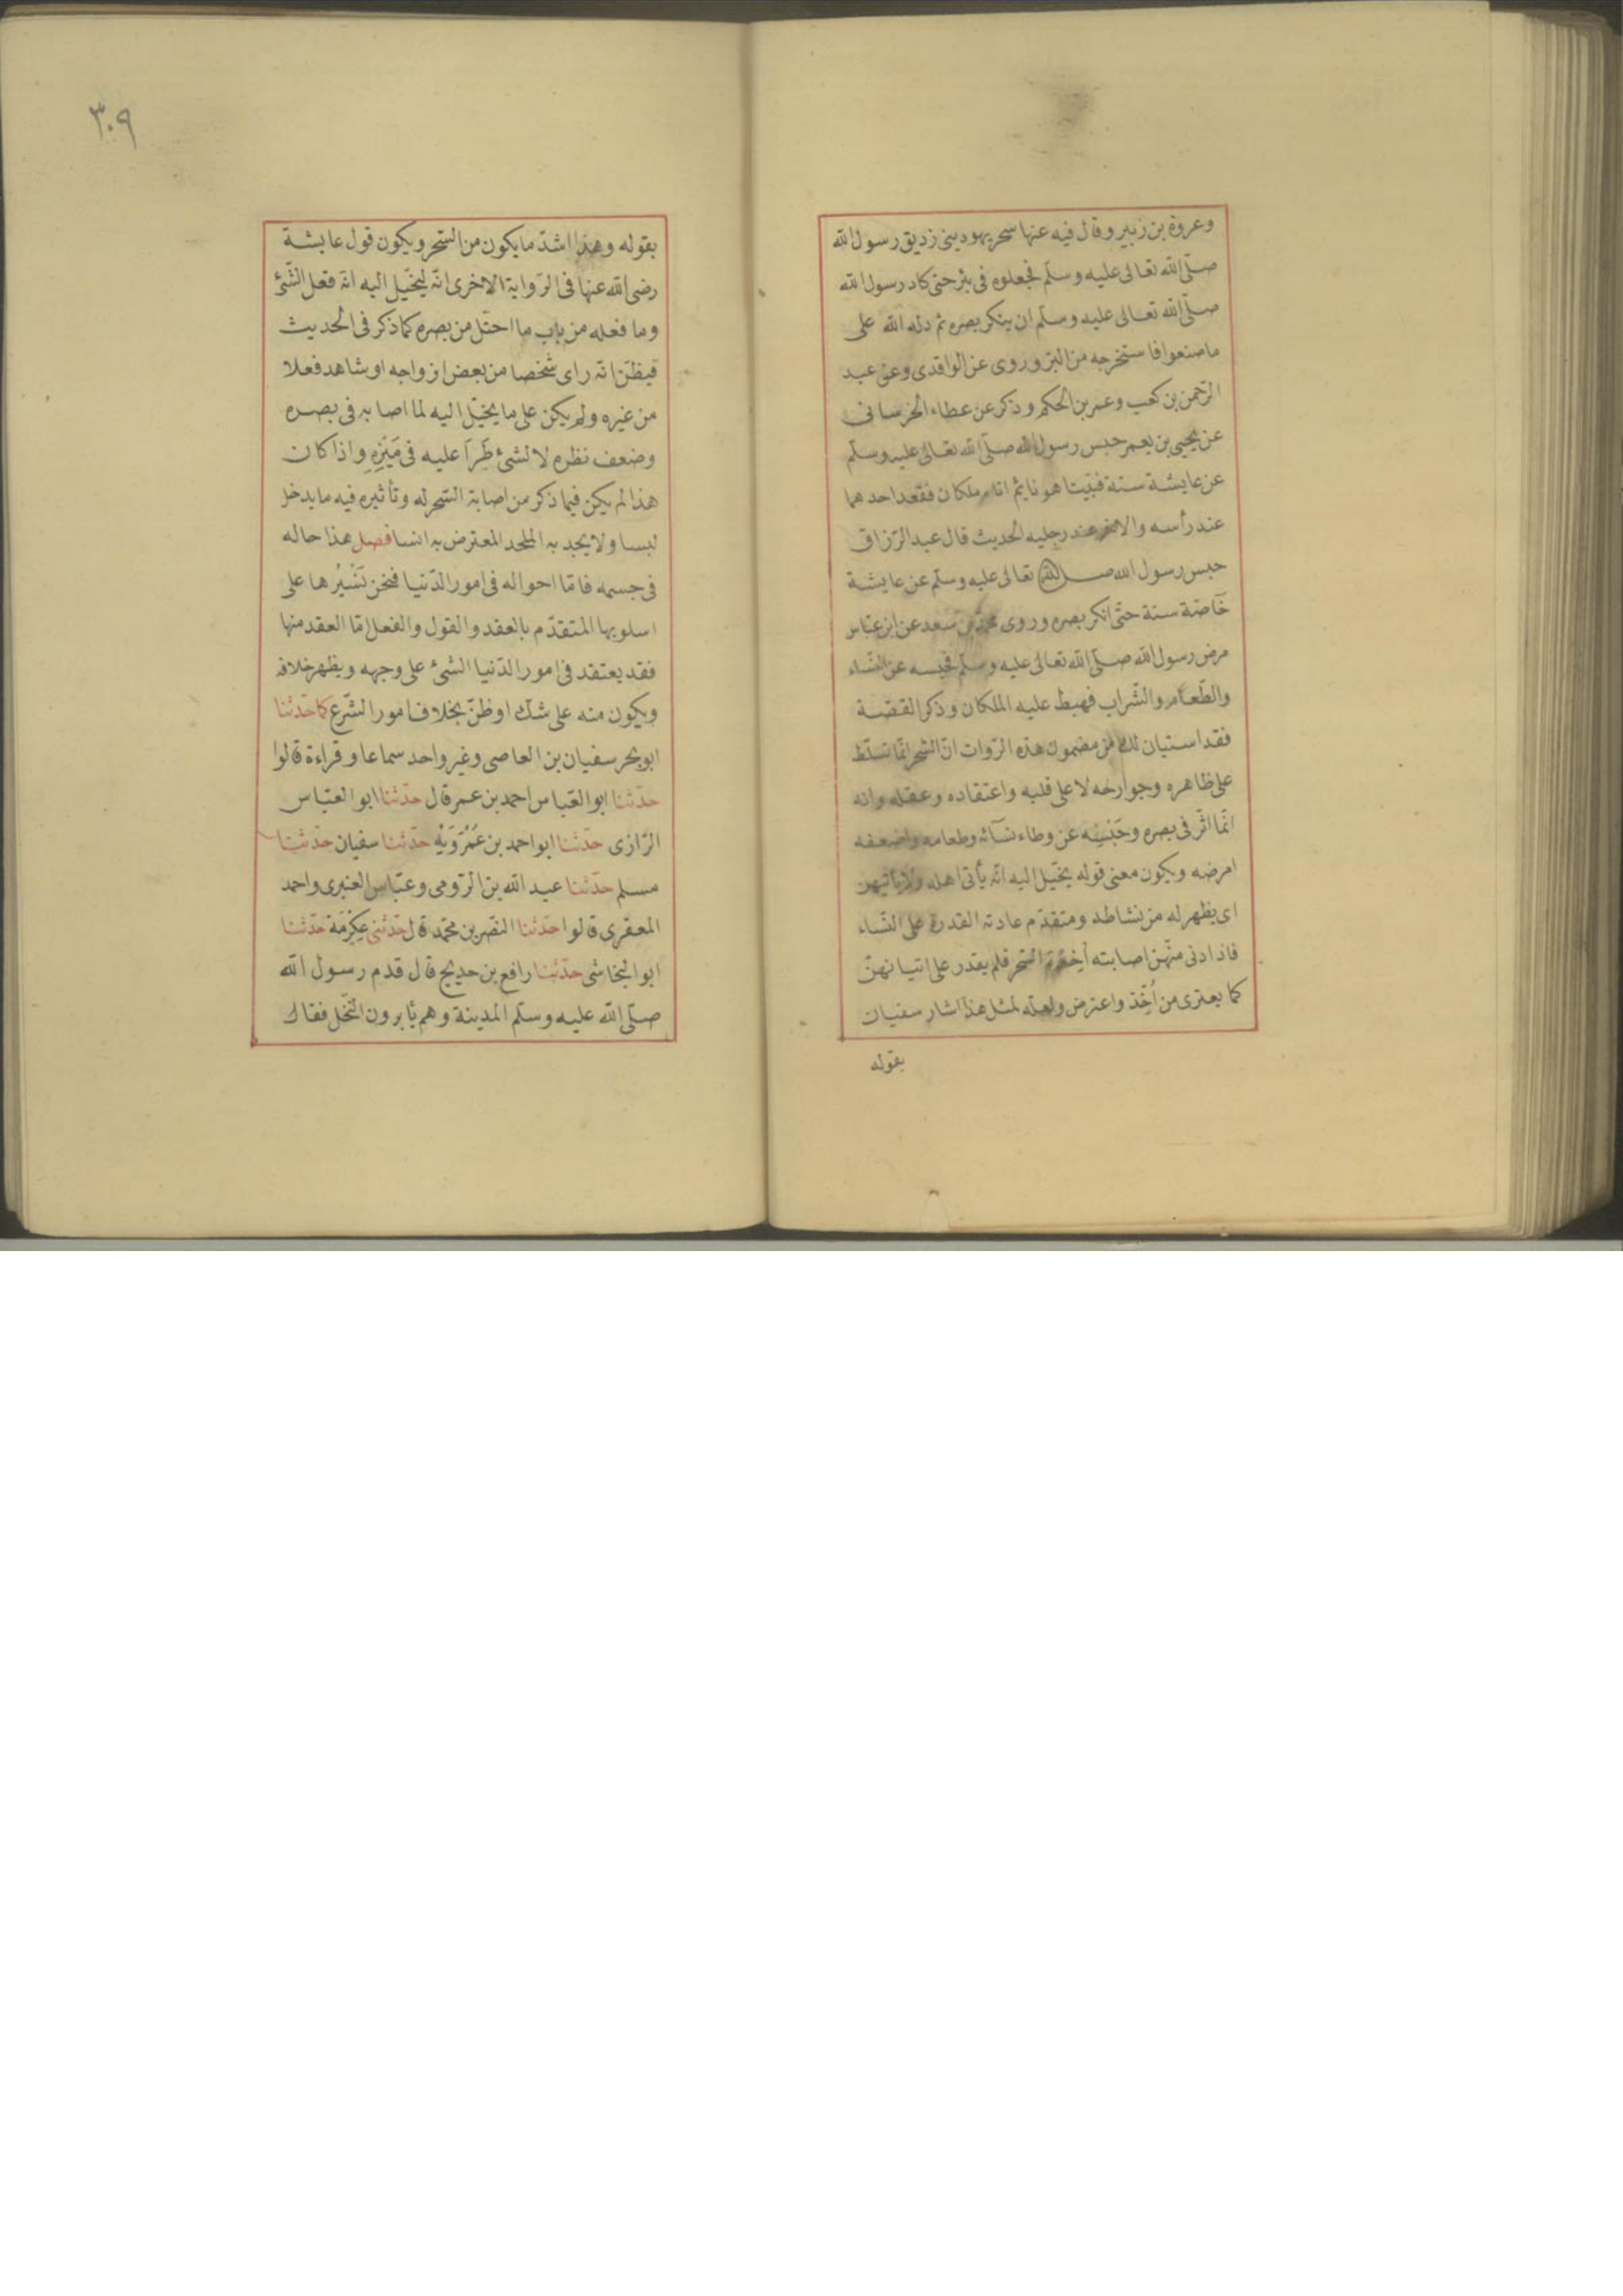 وعروة بن زبير وقال فيه عنها سحر يهود بنى زديق رسول الله
صلّى الله تعالى عليه وسلّم فجعلوه فى بئر حتى كاد رسول الله
صلّى الله تعالى عليه وسلّم ان ينكر بصره ثم دله الله على
ما صنعوا فاستخرجه من البئر وروى عن الواقدى وعن عبد
الرّحمن بن كعب وعمر بن الحكم وذكر عن عطاء الخرسانى
عن يحيى بن يعمر حبس رسول الله صلّى الله تعالى عليه وسلّم
عن عايشة سنة فبيّنا هو نايم اتاه ملكان فقعد احدهما
عند رأسه والاخر عند رجليه الحديث قال عبد الرّزاق
حبس رسول الله صلى الله تعالى عليه وسلّم عن عايشة
خآصّة سنة حتّى انكر بصره وروى محمّد بن سعد عن ابن عبّاس
مرض رسول الله صلّى الله تعالى عليه وسلّم فحبسه عن النّساء
والطّعام والشّراب فهبط عليه الملكان وذكر القصّة
فقد استبان لك من مضمون هذه الرّوات انّ السّحر انّما تسلّط
على ظاهره وجوارحه لا على قلبه واعتقاده وعقله وانه
انّما اثّر فى بصره وحَبْسِه عن وطاء نسآئه وطعامه واضعفه
امرضه ويكون معنى قوله يخيّل اليه انّه يأتى اهله ولا يأتيهن
اى يظهر له من نشاطه ومتقدّم عادته القدرة على النّساء
فاذا دنى منهّن اصابته أخذة السّحر فلم يقدر على اتيانهنّ
كما يعترى من اُخّذ واعترض ولعله لمثل هذا اشار سفيان
بقوله
٣٠٩
بقوله وهذا اشدّ ما يكون من السّحر ويكون قول عايشة
رضى الله عنها فى الرّواية الاخرى انّه ليخيّل اليه انّه فعل الشّئ
وما فعله من باب ما اختّل من بصره كما ذكر فى الحديث
فيظنّ انّه راى شخصا من بعض ازواجه او شاهد فعلا
من غيره ولم يكن على ما يخيّل اليه لما اصابه فى بصره
وضعف نظره لا لشئ طَرَأ عليه فى مَيْزِهِ واذا كان
هذا لم يكن فيما ذكر من اصابة السّحر له وتأثيره فيه ما يدخل
لبسا ولا يجد به الملحد المعترض به انسا فصل هذا حاله
فى جسمه فامّا احواله فى امور الدّنيا فنحن نَسْبُرُها على
اسلوبها المتقدّم بالعقد والقول والفعل امّا العقد منها
فقد يعتقد فى امور الدّنيا الشئ على وجهه ويظهر خلافه
ويكون منه على شكّ او ظنّ بخلاف امور الشّرع كما حدّثنا
ابو بحر سفيان بن العاصى وغير واحد سماعا وقراءة قالوا
حدّثنا ابو العبّاس احمد بن عمر قال حدّثنا ابو العبّاس
الرّازى حدّثنا ابو احمد بن عَمْرَوَيْهِ حدّثنا سفيان حدّثنا
مسلم حدّثنا عبد الله بن الرّومى وعبّاس العنبرى واحمد
المعقرى قالوا حدّثنا النضر بن محمّد قال حدّثنى عِكْرَمَة حدّثنا
ابو النجاشى حدّثنا رافع بن خديج قال قدم رسول الله
صلّى الله عليه وسلّم المدينة وهم يأبرون النّخل فقال